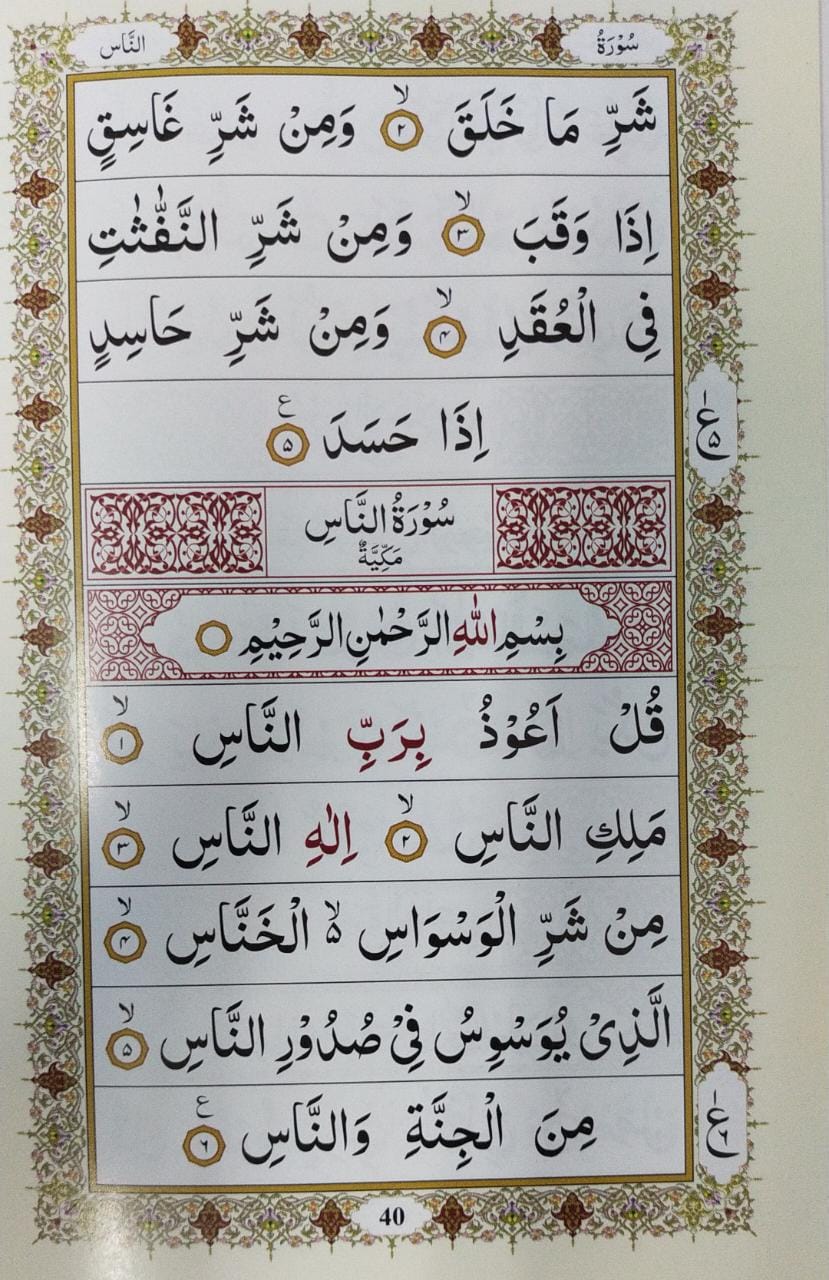 سُوْرَةُ النَّاس
شَرِّ مَا خَلَقَ ۙ‏﴿۲﴾ وَمِنْ شَرِّ غَاسِقٍ
اِذَا وَقَبَ ۙ‏﴿۳﴾ وَمِنْ شَرِّ النَّفّٰثٰتِ
فِى الْعُقَدِ ۙ‏﴿۴﴾ وَمِنْ شَرِّ حَاسِدٍ
اِذَا حَسَدَ ع ﴿۵﴾
ع ۵
سُوْرَةُ النَّاسِ
مَكِّيَّةٌ
بِسْمِ اللّٰهِ الرَّحْمٰنِ الرَّحِيْمِ ○
قُلْ اَعُوْذُ بِرَبِّ النَّاسِ ۙ‏﴿۱﴾
مَلِكِ النَّاسِ ۙ‏﴿۲﴾ اِلٰهِ النَّاسِ ۙ‏﴿۳﴾
مِنْ شَرِّ الْوَسْوَاسِ ۙ۵ الْخَنَّاسِ ۙ‏﴿۴﴾
الَّذِىْ يُوَسْوِسُ فِىْ صُدُوْرِ النَّاسِ ۙ‏﴿۵﴾
مِنَ الْجِنَّةِ وَالنَّاسِ ع ﴿۶﴾
ع ۶
40